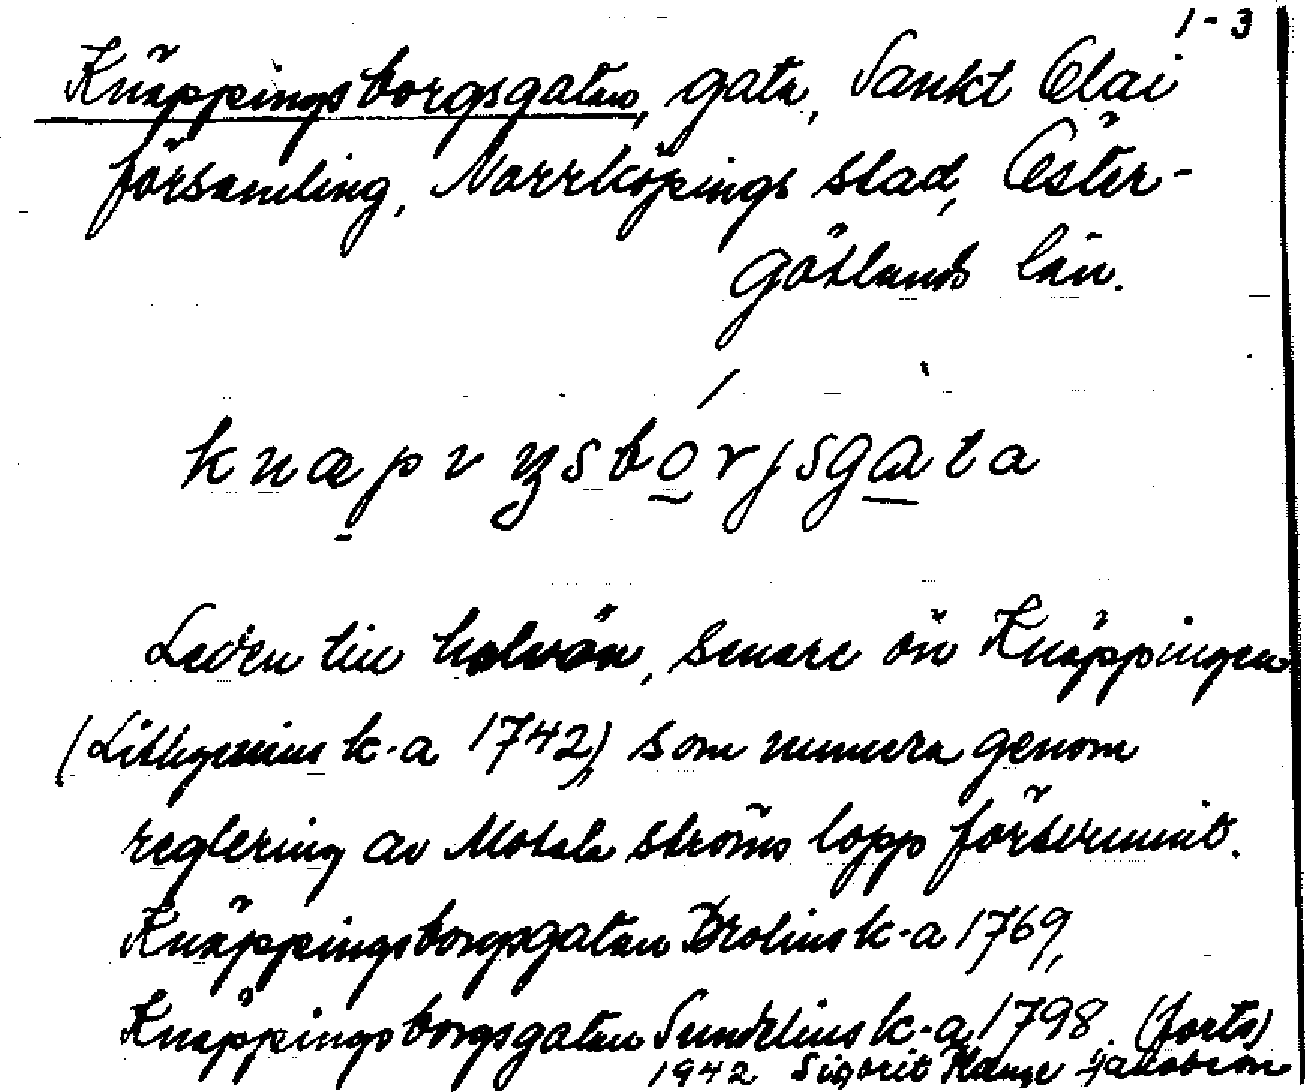 1-3
Knäppingsborgsgatan, gata, Sankt Olai
församling, Norrköpings stad, Öster-
götlands län.
knæpıŋsbórjsgàta
Leden till halvön, senare ön Knäppingen
(Lithzenius k-a 1742), som numera genom
reglering av Motala ströms lopp försvunnit.
Knäppingsborgsgatan Brolins k-a 1769,
Knäppingsborgsgatan Sundelius k-a 1798. (forts)
1942 Sigurd